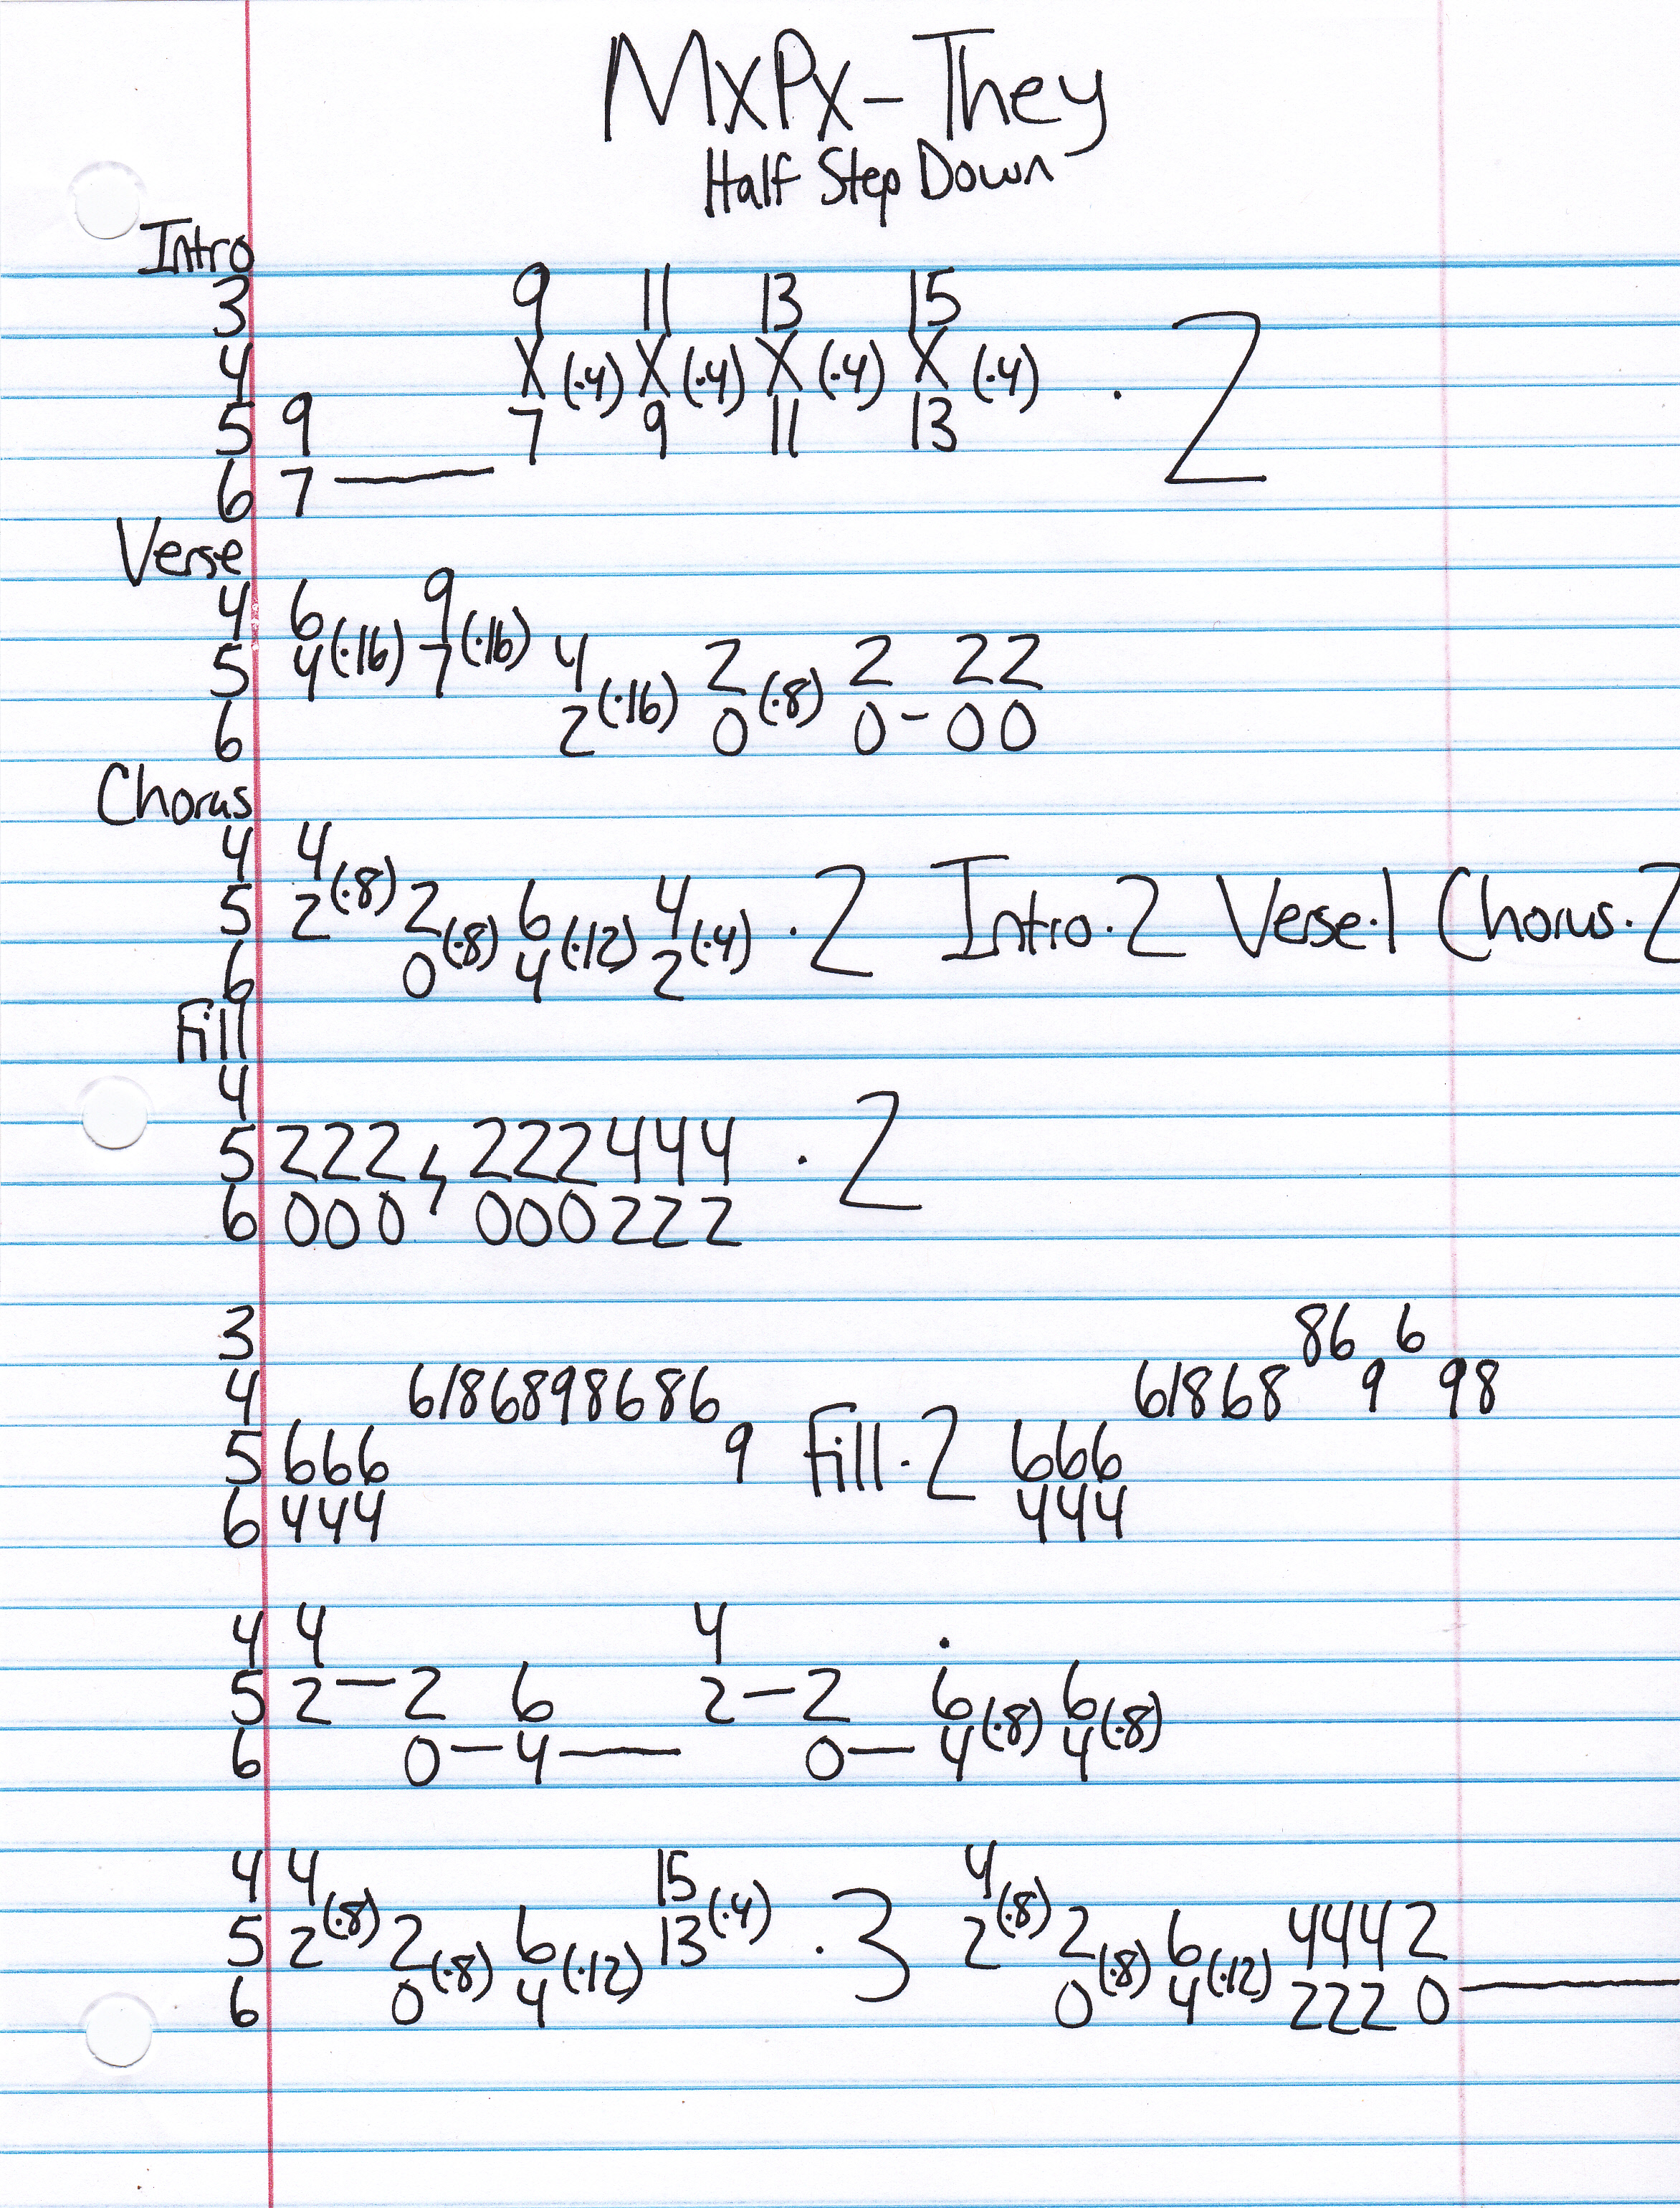 MxPx - They
Half Step Down
Intro
3 9 11 13 15
4 X (·4) X (·4) X (·4) X (·4) · 2
5 9 7 9 11 13
6 7 —
Verse
4 6 9
5 4 (·16) 7 (·16) 4 2 2 22
6 2 (·16) 0 (·8) 0 - 00
Chorus
4 4
5 2 (·8) 2 6 4 · 2 Intro·2 Verse·1 Chorus·2
6 0 (·8) 4 (·12) 2 (·4)
Fill
4
5 222 , 222444 · 2
6 000 000222
3 86 6
4 6/86898686 6/868 9 98
5 666 9 Fill·2 666
6 444 444
4 4 4 ·
5 2 — 2 6 2 — 2 6 (·8) 6 (·8)
6 0 — 4 — 0 — 4 4
4 4 15 4
5 2 (·8) 2 6 13 (·4) · 3 2 (·8) 2 6 4442
6 0 (·8) 4 (·12) 0 (·8) 4 (·12) 2220 —